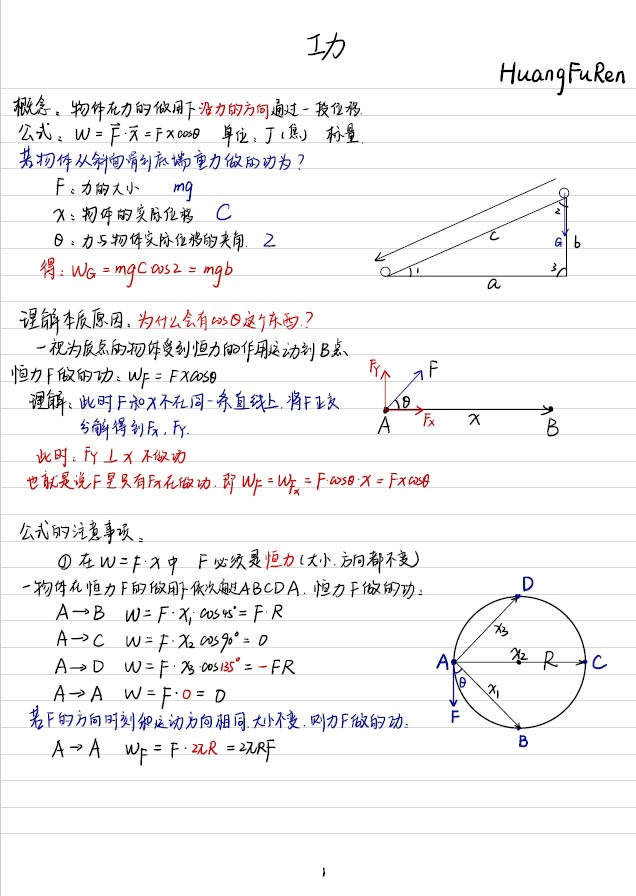 功
HuangFuRen
概念：物体在力的做用下沿力的方向通过一段位移
公式：W = F⃗·x⃗ = Fxcosθ 单位：J (焦) 标量
若物体从斜面滑到底端重力做的功为？
F：力的大小 mg
x：物体的实际位移 C
θ：力与物体实际位移的夹角 2
得：WG = mgCcos2 = mgb
1
2
3
a
b
c
G
理解本质原因：为什么会有cosθ这个东西？
一视为质点的物体受到恒力的作用运动到B点
恒力F做的功：WF = FXcosθ
理解：此时F和X不在同一条直线上，将F正交
分解得到Fx，Fy
此时：Fy⊥x 不做功
也就是说F里只有Fx在做功，即 WF = WFx = F·cosθ·x = Fxcosθ
Fy
F
θ
A
Fx
x
B
公式的注意事项：
① 在 W = F·x 中 F必须是恒力(大小、方向都不变)
一物体在恒力F的做用下依次通过ABCDA，恒力F做的功：
A→B W = F·x₁·cos45° = F·R
A→C W = F·x₂ cos90° = 0
A→D W = F·x₃·cos135° = -FR
A→A W = F·0 = 0
若F的方向时刻和运动方向相同，大小不变，则力F做的功：
A→A WF = F·2πR = 2πRF
D
x₃
A
x₂
R
C
θ
x₁
F
B
1